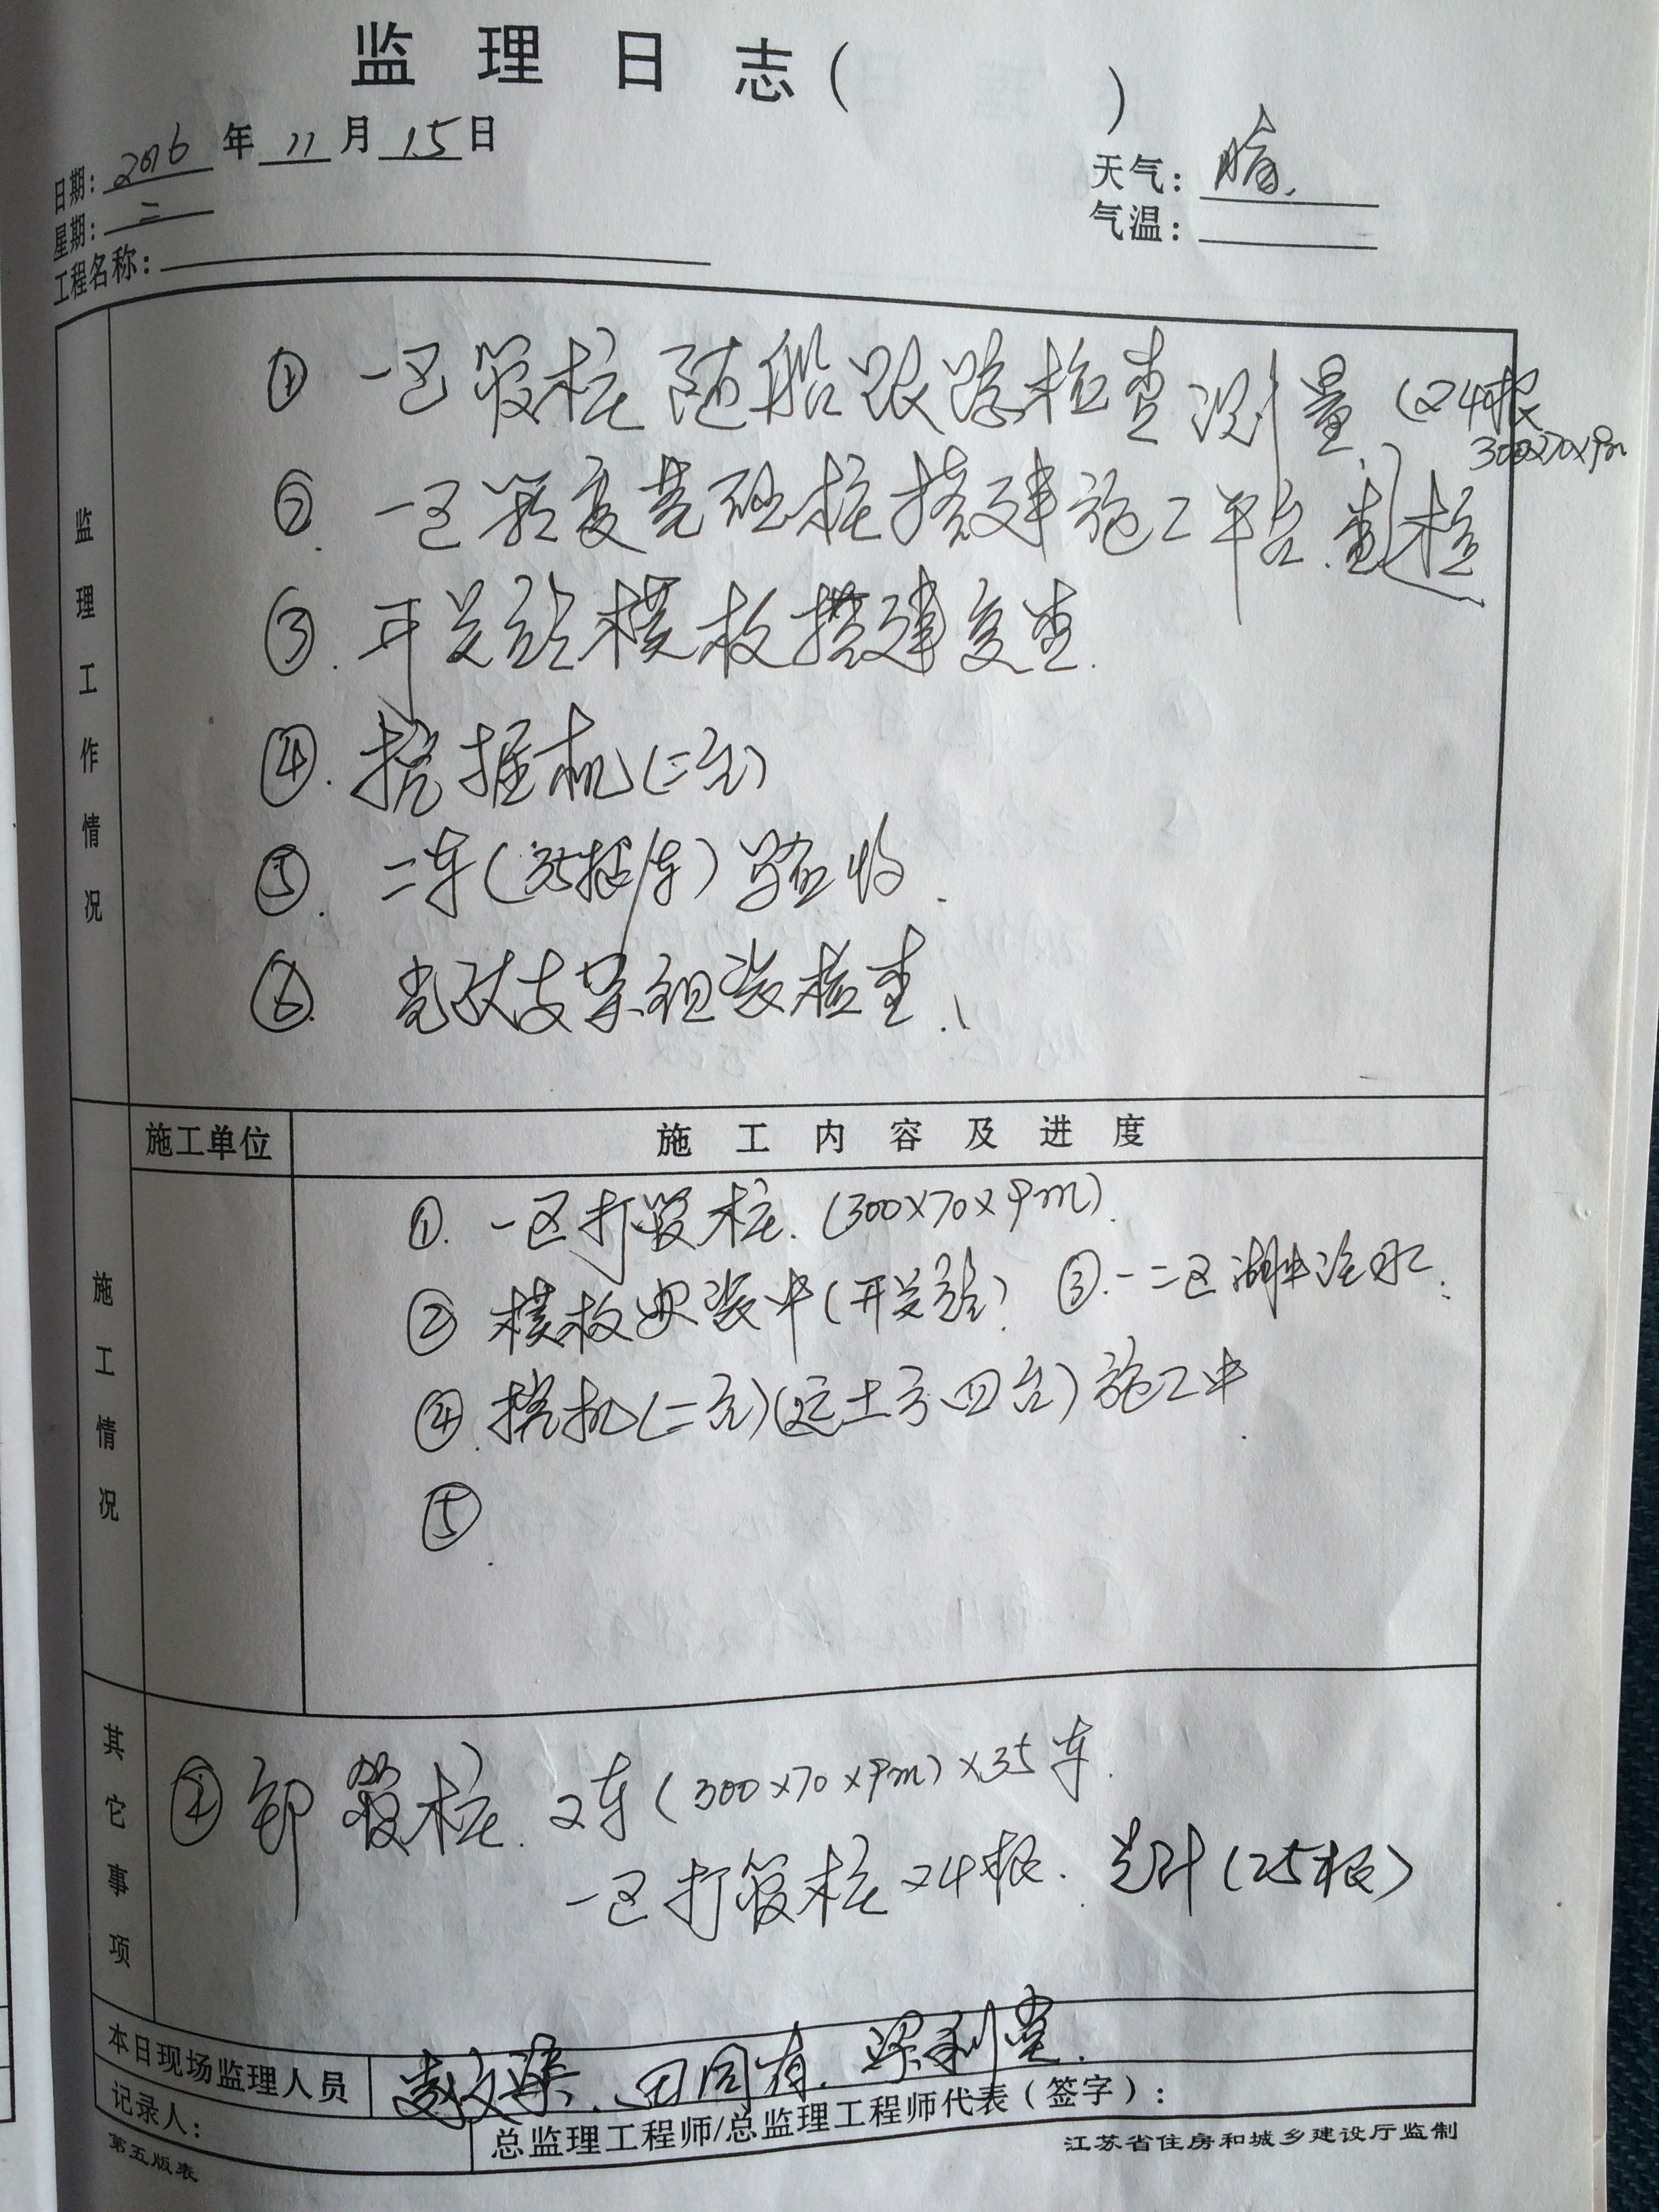 监理日志（ ）
日期：2016年11月15日
天气：晴.
星期：二
气温：
工程名称：
监理工作情况
① 一区管桩随船跟踪检查测量.（24根
300×70×9m）
② 一区箱变基础桩搭建施工平台.检
③. 开关站模板搭建复查.
④. 挖掘机(二台)
⑤. 二车(35根/车)验收.
⑥. 支架组装检查.
施工单位
施工内容及进度
施工情况
①. 一区打管桩.(300×70×9m).
② 模板安装中(开关站) ③.一二区湖中注水.
④. 挖机(二台)(运土方四台)施工中.
⑤.
其它事项
① 卸管桩.2车(300×70×9m)×35车.
一区打管桩24根.总计(25根)
本日现场监理人员
田同有.
记录人：
总监理工程师/总监理工程师代表（签字）：
第五版表
江苏省住房和城乡建设厅监制